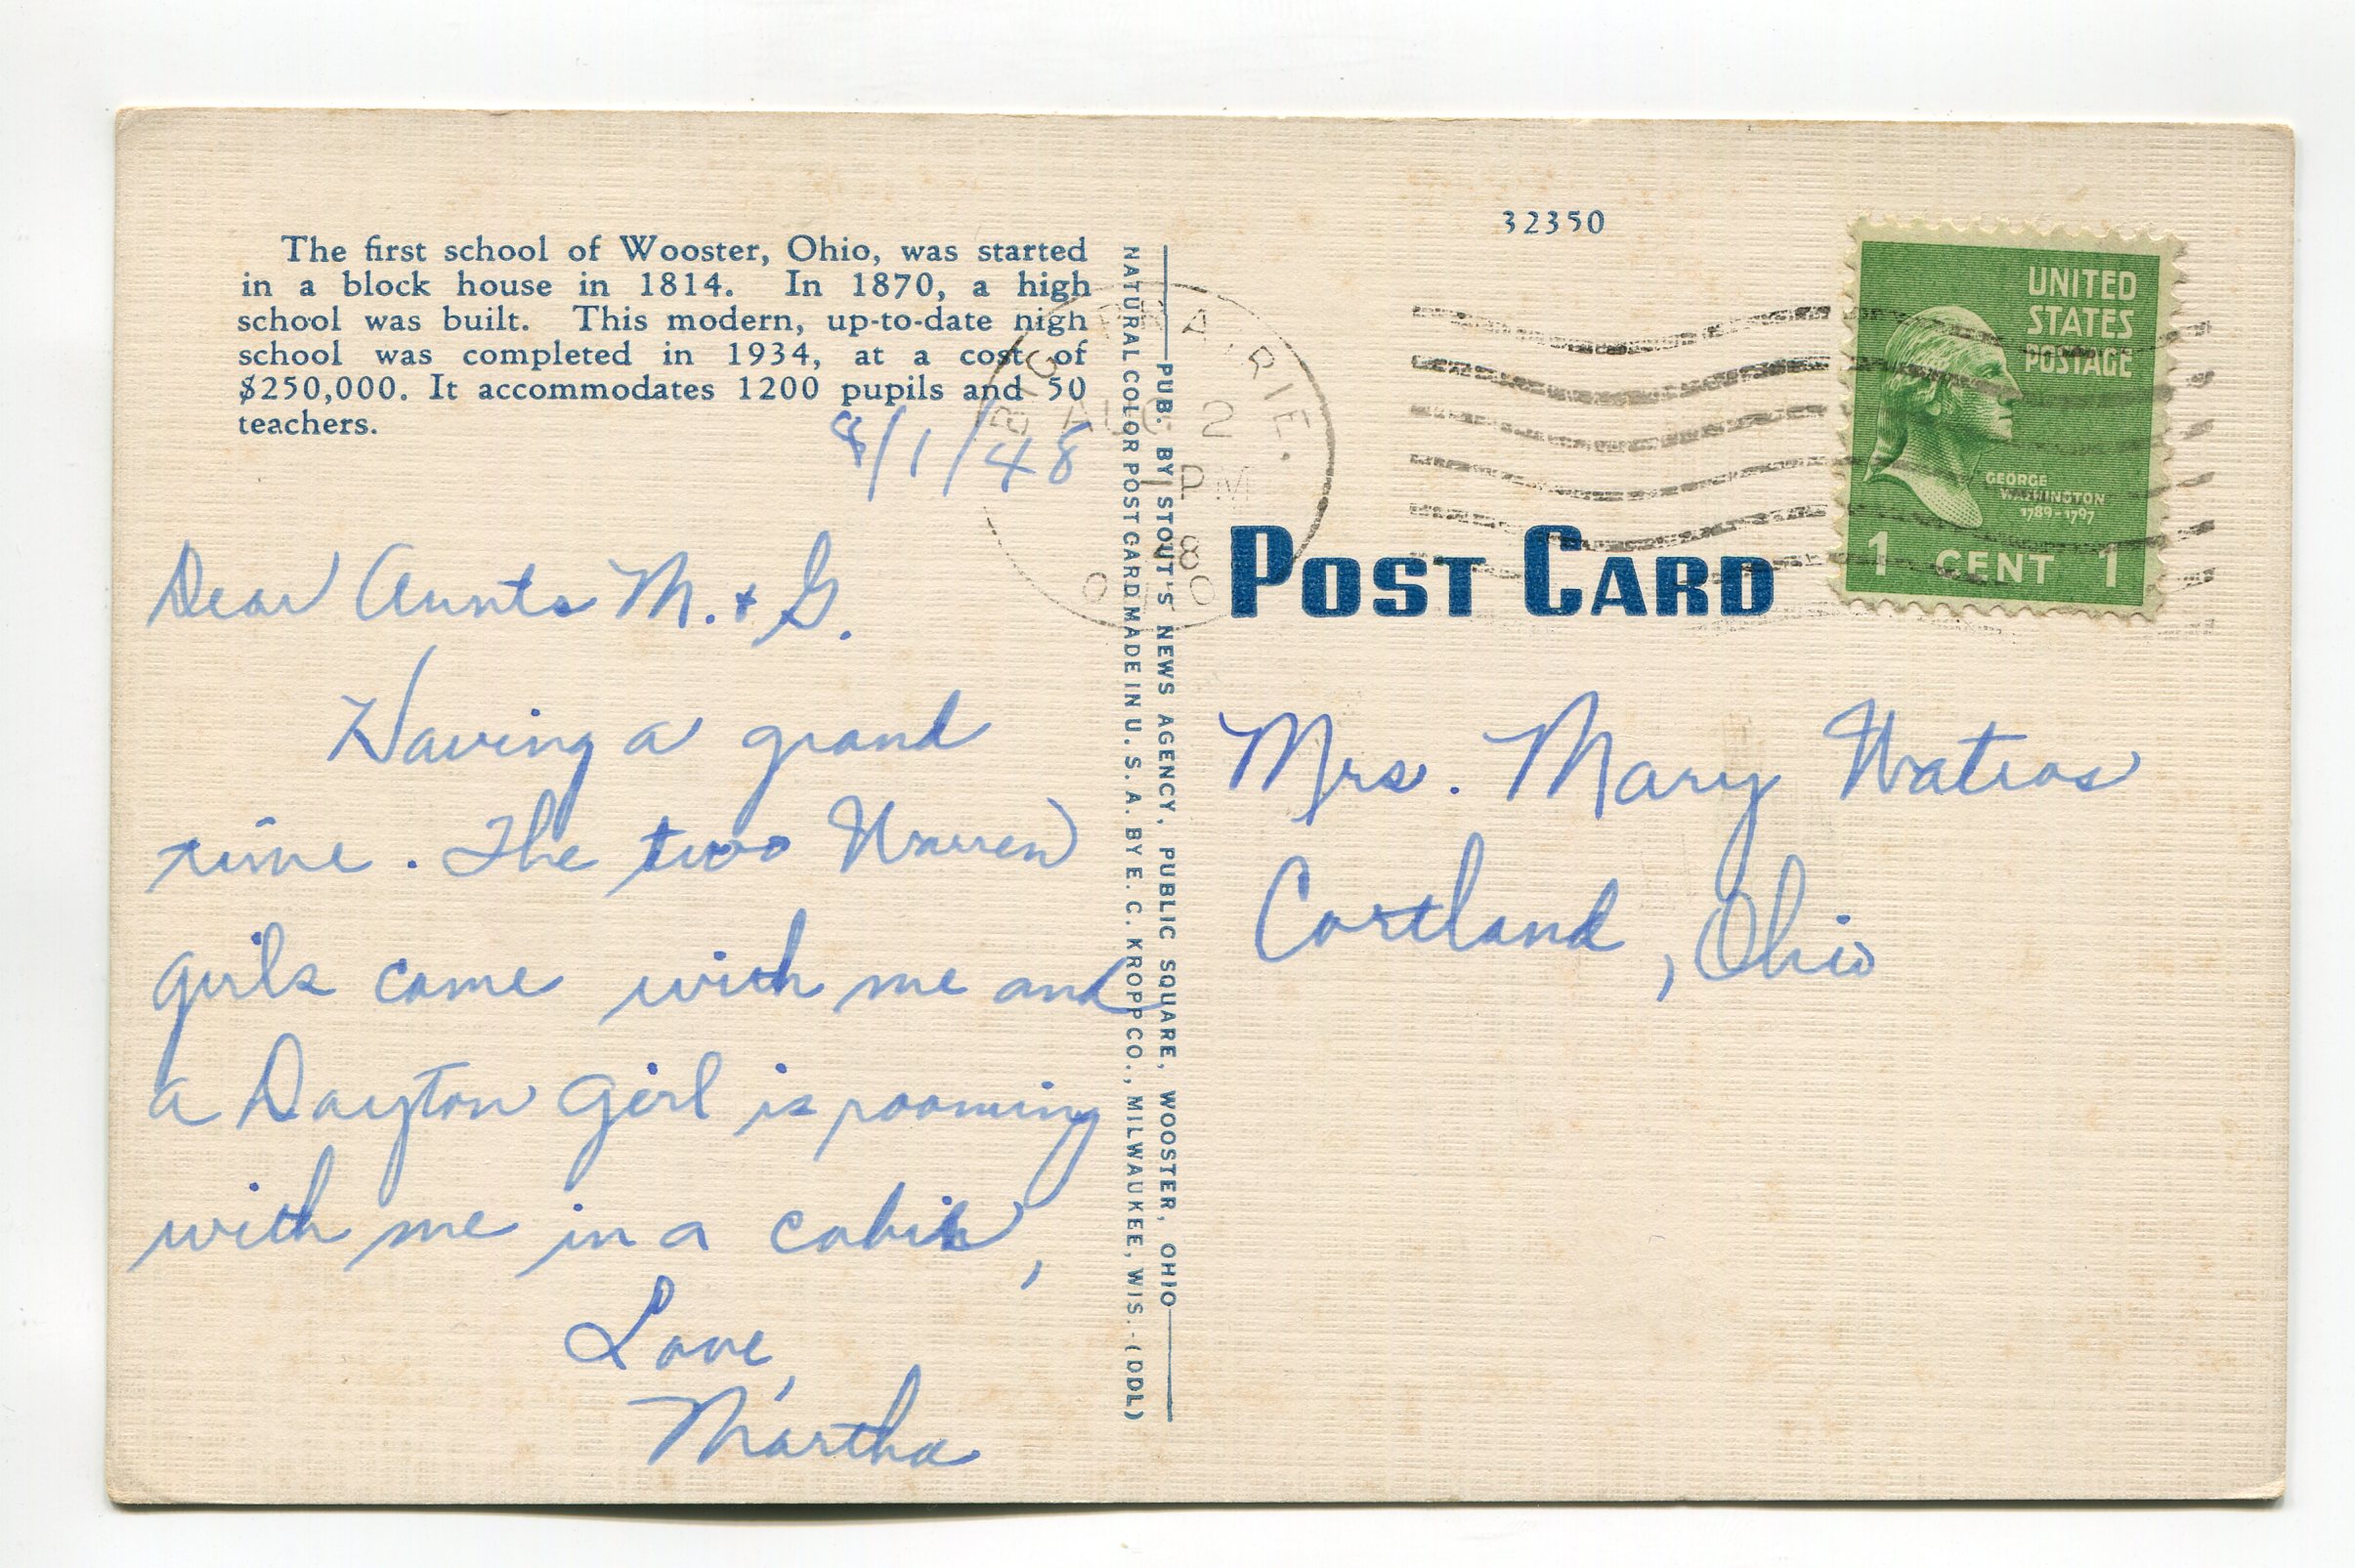 The first school of Wooster, Ohio, was started
in a block house in 1814. In 1870, a high
school was built. This modern, up-to-date nigh
school was completed in 1934, at a cost of
$250,000. It accommodates 1200 pupils and 50
teachers.
8/1/48
Dear Aunts M. + G.
Having a grand
time. The two Warren
girls came with me and
a Dayton girl is rooming
with me in a cabin,
Love,
Martha
NATURAL COLOR POST CARD MADE IN U. S. A. BY E. C. KROPP CO., MILWAUKEE, WIS.-(DDL)
PUB. BY STOUT'S NEWS AGENCY, PUBLIC SQUARE, WOOSTER, OHIO
PRAIRIE.
AUG 2
PM
32350
UNITED
STATES
POSTAGE
GEORGE
WASHINGTON
1789-1797
1 CENT 1
POST CARD
Mrs. Mary Watros
Cortland, Ohio